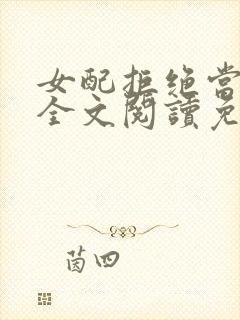 女配拒绝当
全文閱讀免
茵四